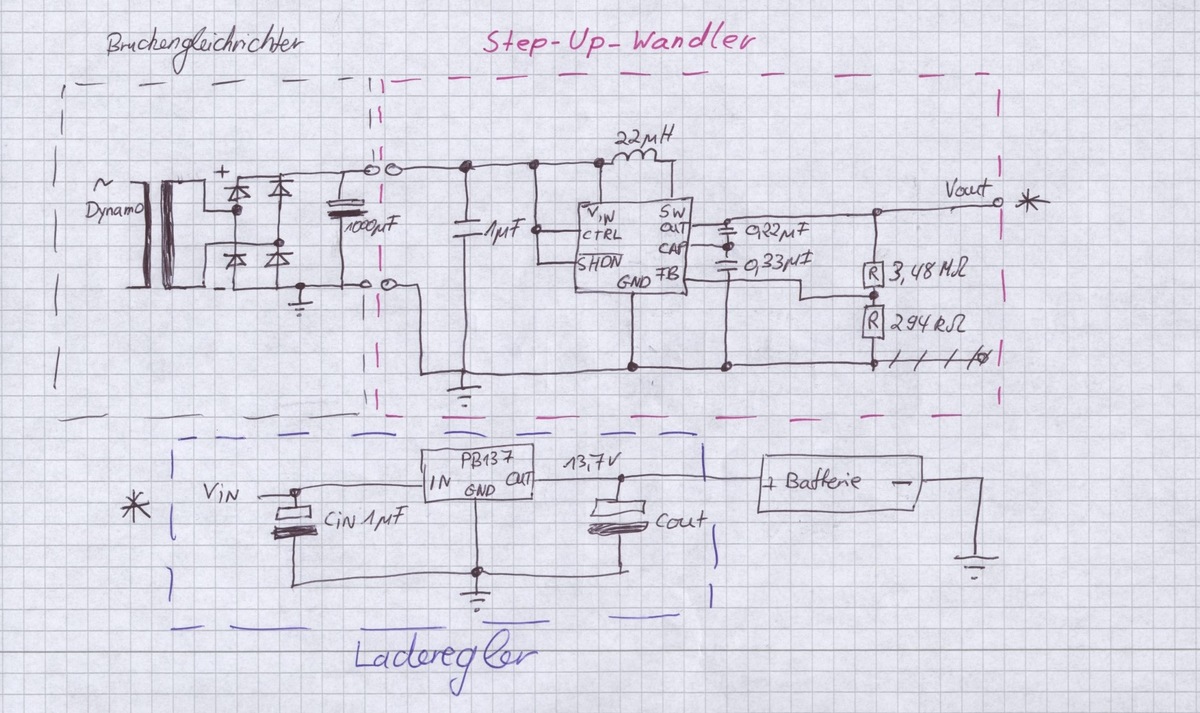 Bruckengleichrichter
Step-Up-Wandler
22µH
~
Dynamo
+
-
1000µF
1µF
VIN
CTRL
SHDN
GND
SW
OUT
CAP
FB
0,22µF
0,33µF
Vout *
R 3,48 MΩ
R 294 kΩ
*
VIN
CiN 1µF
PB137
IN
GND
OUT
13,7V
Cout
+ Batterie -
Laderegler